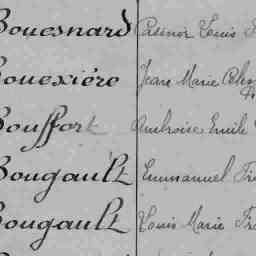 Bouesnard Casimir Louis
Bouexière Jean Marie
Bouffort Ambroise Emile
Bougault Emmanuel
Bougault Louis Marie